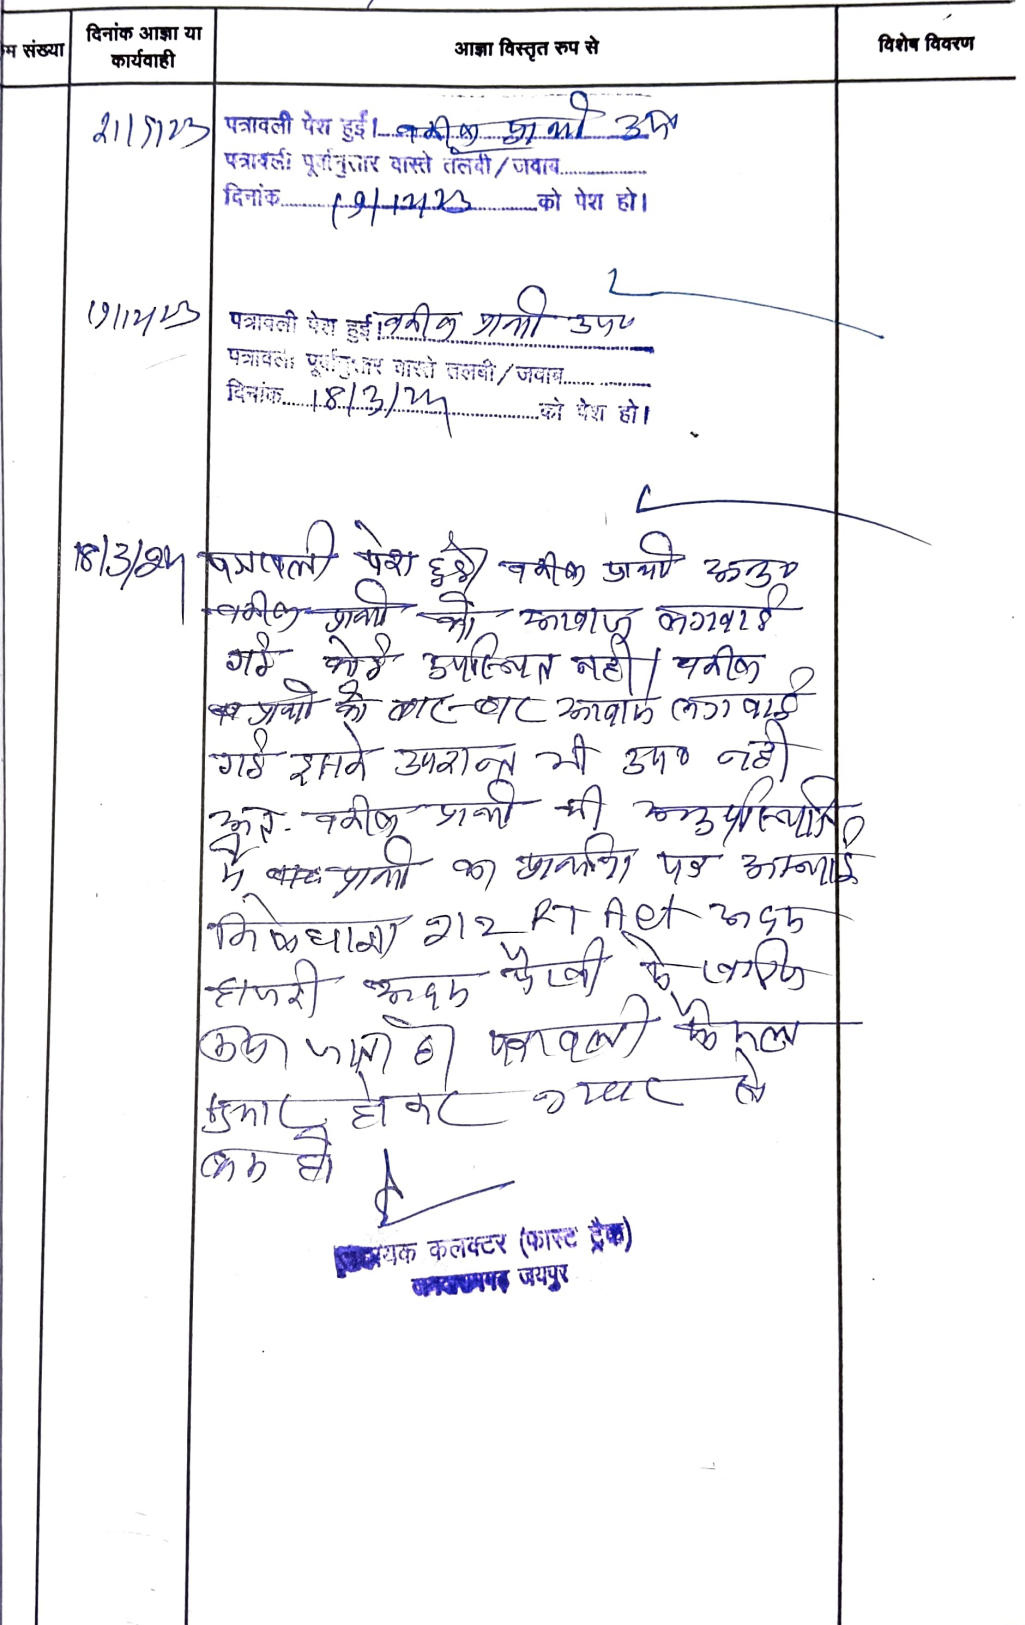 म संख्या
दिनांक आज्ञा या
कार्यवाही
आज्ञा विस्तृत रुप से
विशेष विवरण
21/9/23
पत्रावली पेश हुई। वकील प्रार्थी उप०
पत्रावली पूर्वानुसार वास्ते तलबी/जवाब
दिनांक 19/12/23 को पेश हो।
19/12/23
पत्रावली पेश हुई। वकील प्रार्थी उप०
पत्रावली पूर्वानुसार वास्ते तलबी/जवाब
दिनांक 18/3/24 को पेश हो।
18/3/24
पत्रावली पेश हुई। वकील प्रार्थी अनुप०
वकील प्रार्थी को आवाज लगवाई
गई कोई उपस्थित नहीं। वकील
प्रार्थी को बार-बार आवाज लगवाई
गई इसके उपरान्त भी उप० नहीं
अतः वकील प्रार्थी की अनुपस्थिति
में प्रार्थी का प्रार्थना पत्र अस्थाई
निषेधाज्ञा 212 RT Act अदम
हाजरी अदम पैरवी में खारिज
किया जाता है। पत्रावली फैसल
शुमार होकर नम्बर से
कम हो।
सहायक कलक्टर (फास्ट ट्रैक)
जयपुर